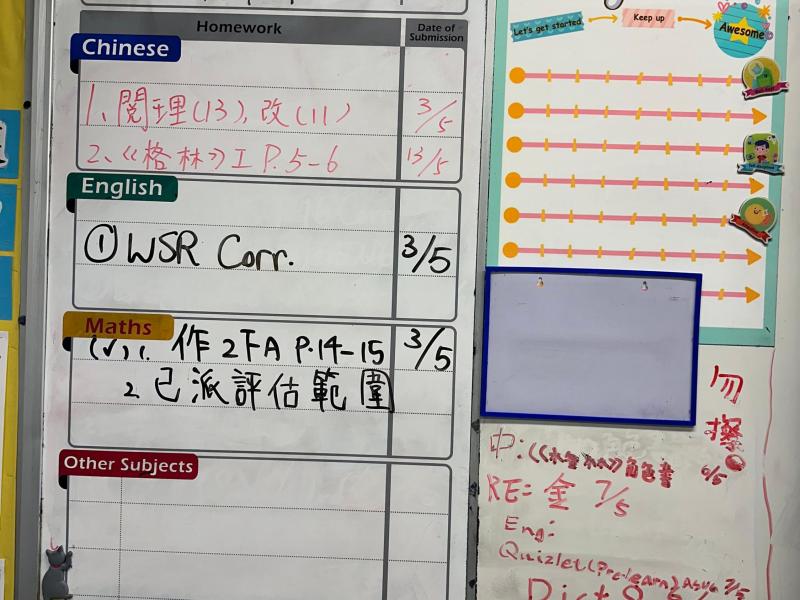 Homework
Date of Submission
Chinese
1、閱理(13), 改(11) 3/5
2、《格林》工 P.5-6 13/5
English
① WSR Corr. 3/5
Maths
(√) 1. 作2下A P.14-15 3/5
2. 已派評估範圍
Other Subjects
Let's get started
Keep up
Awesome
勿擦
中:《格林》角色書 6/5
RE= 金 7/5
Eng:
Quizlet (Pre-learn) 7/5
Dict 8